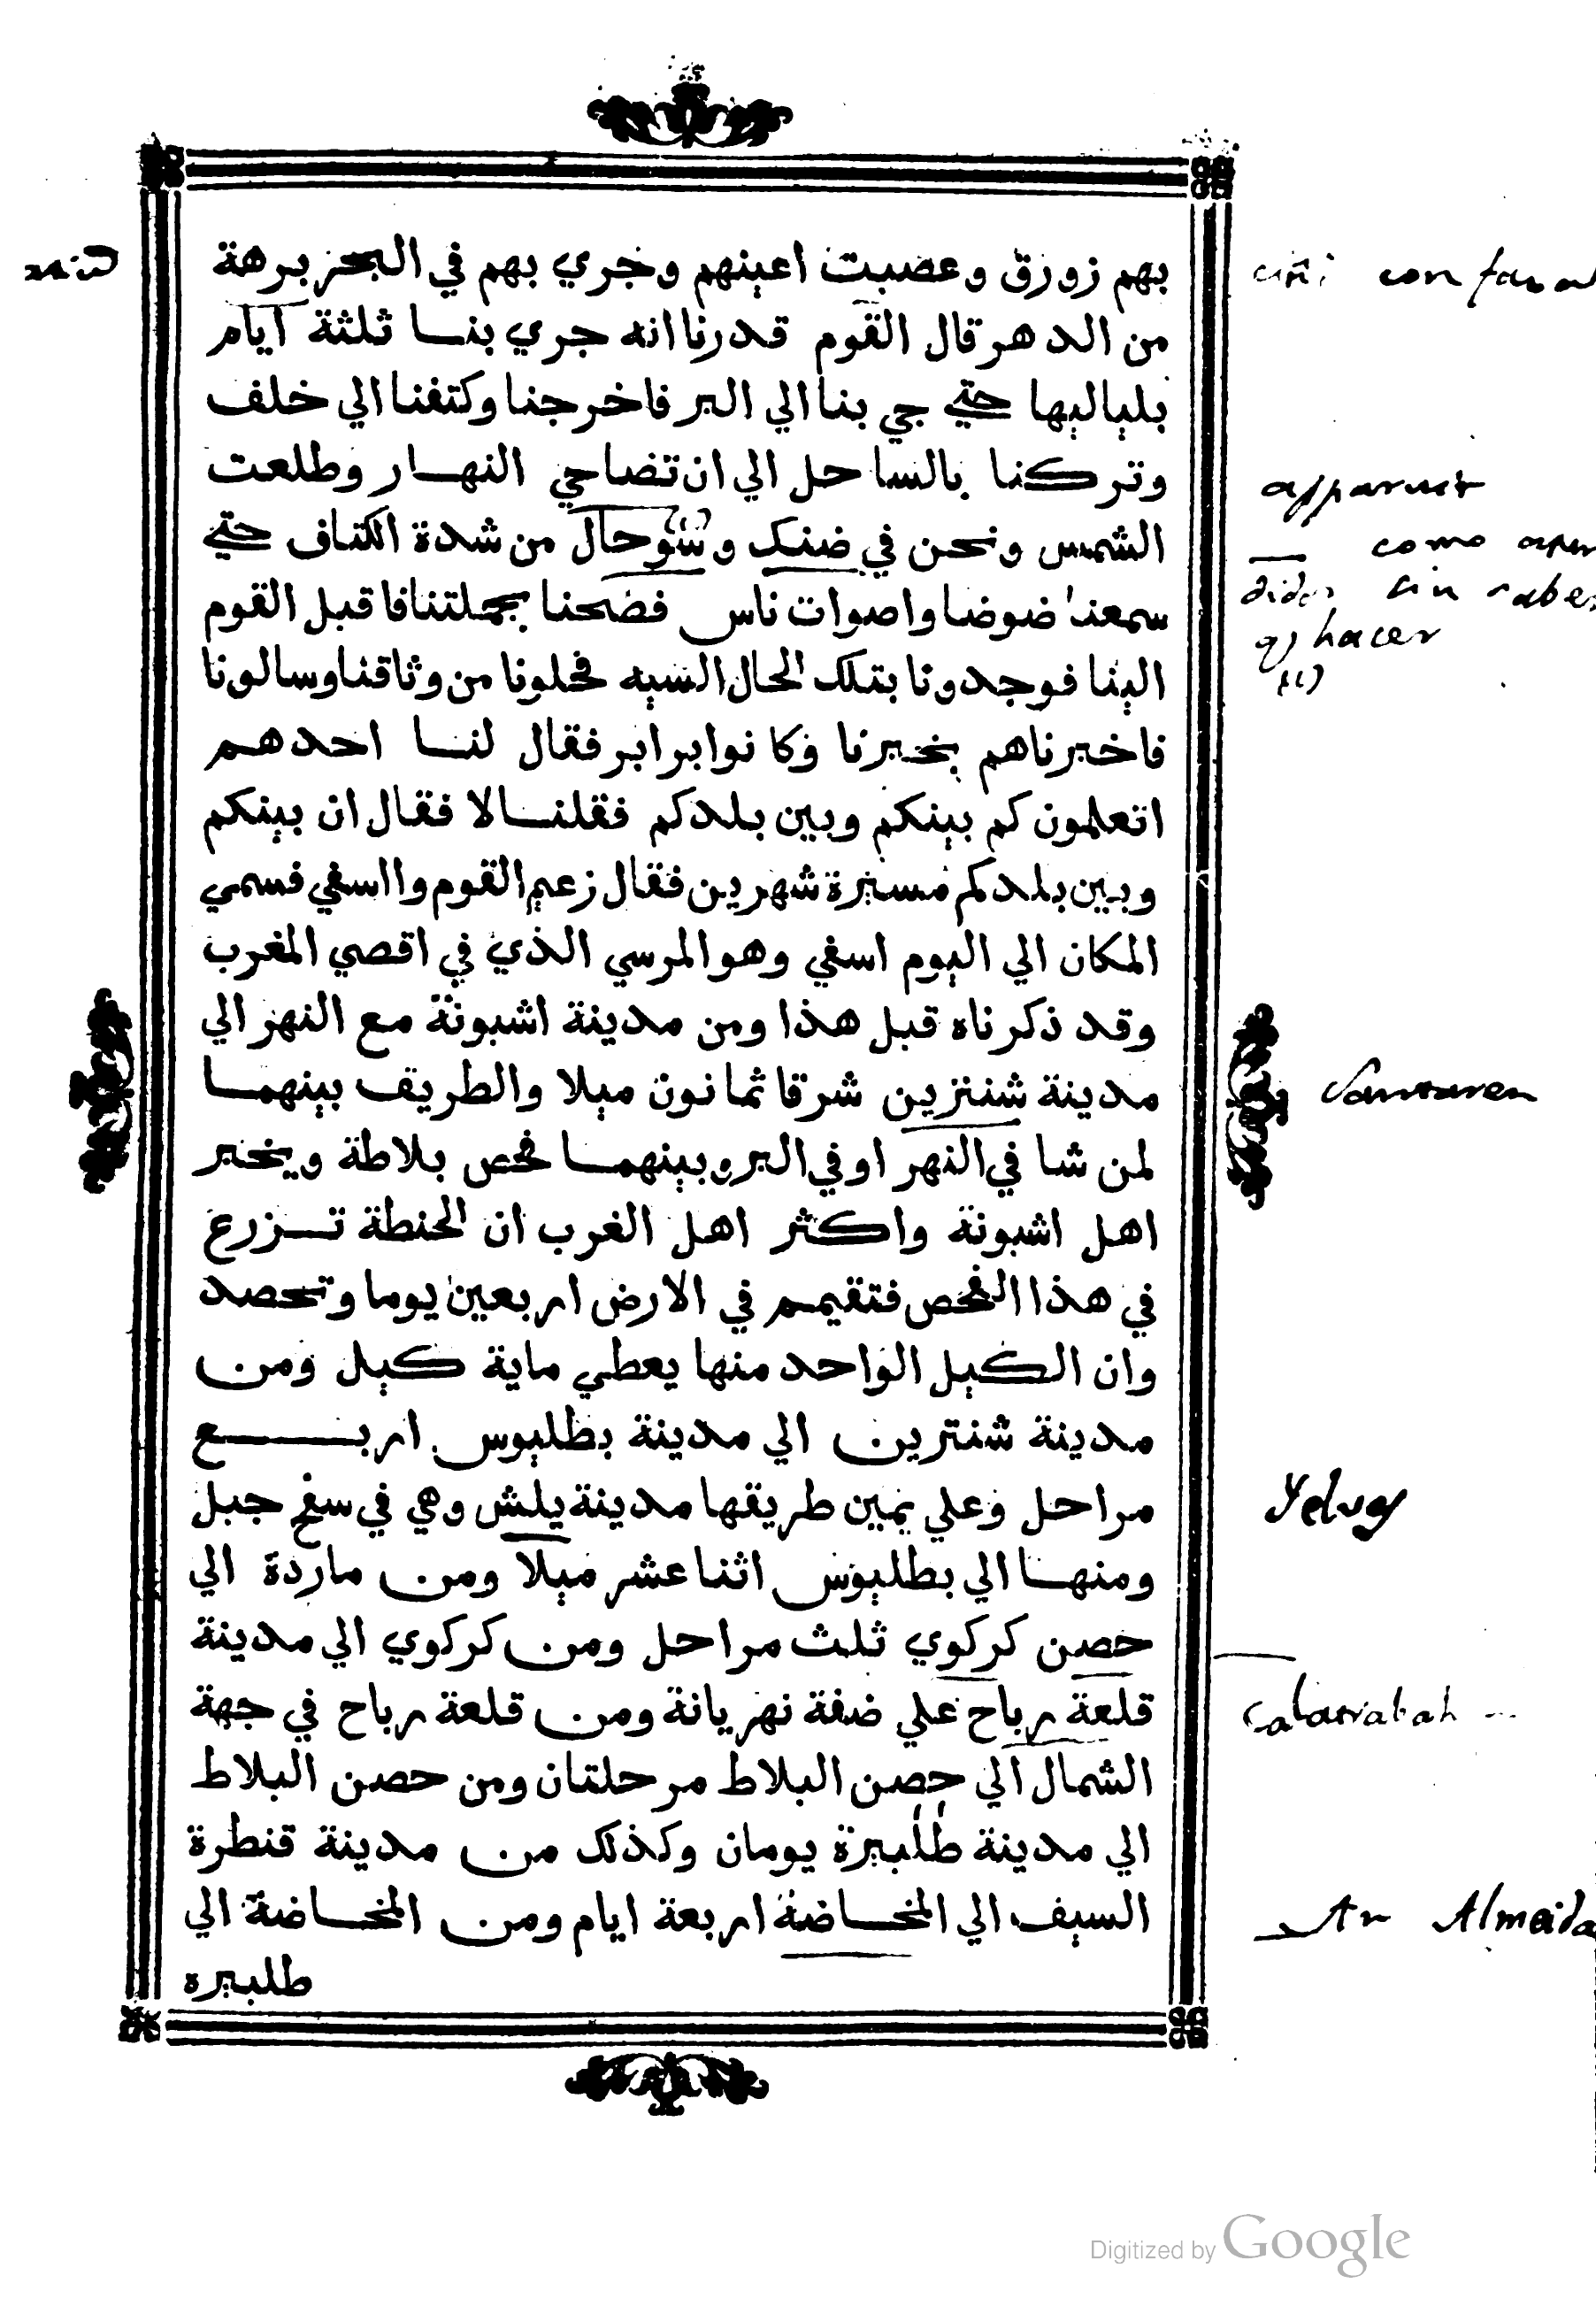 بهم زورق وعصبت اعينهم وجري بهم في البحر برهة
من الدهر قال القوم قدرنا انه جري بنا ثلثة ايام
بلياليها حتي جي بنا الي البر فاخرجنا وكتفنا الي خلف
وتركنا بالساحل الي ان تضاحي النهار وطلعت
الشمس ونحن في ضنك وسو حال من شدة الكتاف حتي
سمعنا ضوضا واصوات ناس فضحنا بجملتنا فاقبل القوم
الينا فوجدونا بتلك الحال السيه فحلونا من وثاقنا وسالونا
فاخبرناهم بخبرنا وكانوا برابر فقال لنا احدهم
اتعلمون كم بينكم وبين بلدكم فقلنا لا فقال ان بينكم
وبين بلدكم مسيرة شهرين فقال زعيم القوم وااسفي فسمي
المكان الي اليوم اسفي وهو المرسي الذي في اقصي المغرب
وقد ذكرناه قبل هذا ومن مدينة اشبونة مع النهر الي
مدينة شنترين شرقا ثمانون ميلا والطريق بينهما
لمن شا في النهر او في البر وبينهما فحص بلاطة ويخبر
اهل اشبونة واكثر اهل الغرب ان الحنطة تزرع
في هذا الفحص فتقيم في الارض اربعين يوما وتحصد
وان الكيل الواحد منها يعطي ماية كيل ومن
مدينة شنترين الي مدينة بطليوس اربع
مراحل وعلي يمين طريقها مدينة يلش وهي في سفح جبل
ومنها الي بطليوس اثنا عشر ميلا ومن ماردة الي
حصن كركوي ثلث مراحل ومن كركوي الي مدينة
قلعة رباح علي ضفة نهر يانة ومن قلعة رباح في جهة
الشمال الي حصن البلاط مرحلتان ومن حصن البلاط
الي مدينة طلبيرة يومان وكذلك من مدينة قنطرة
السيف الي المخاضة اربعة ايام ومن المخاضة الي
طلبيره
con
apparuit
como
sin
q) hacer
Santaren
Yelves
Calatrabah
Almeida
Digitized by Google